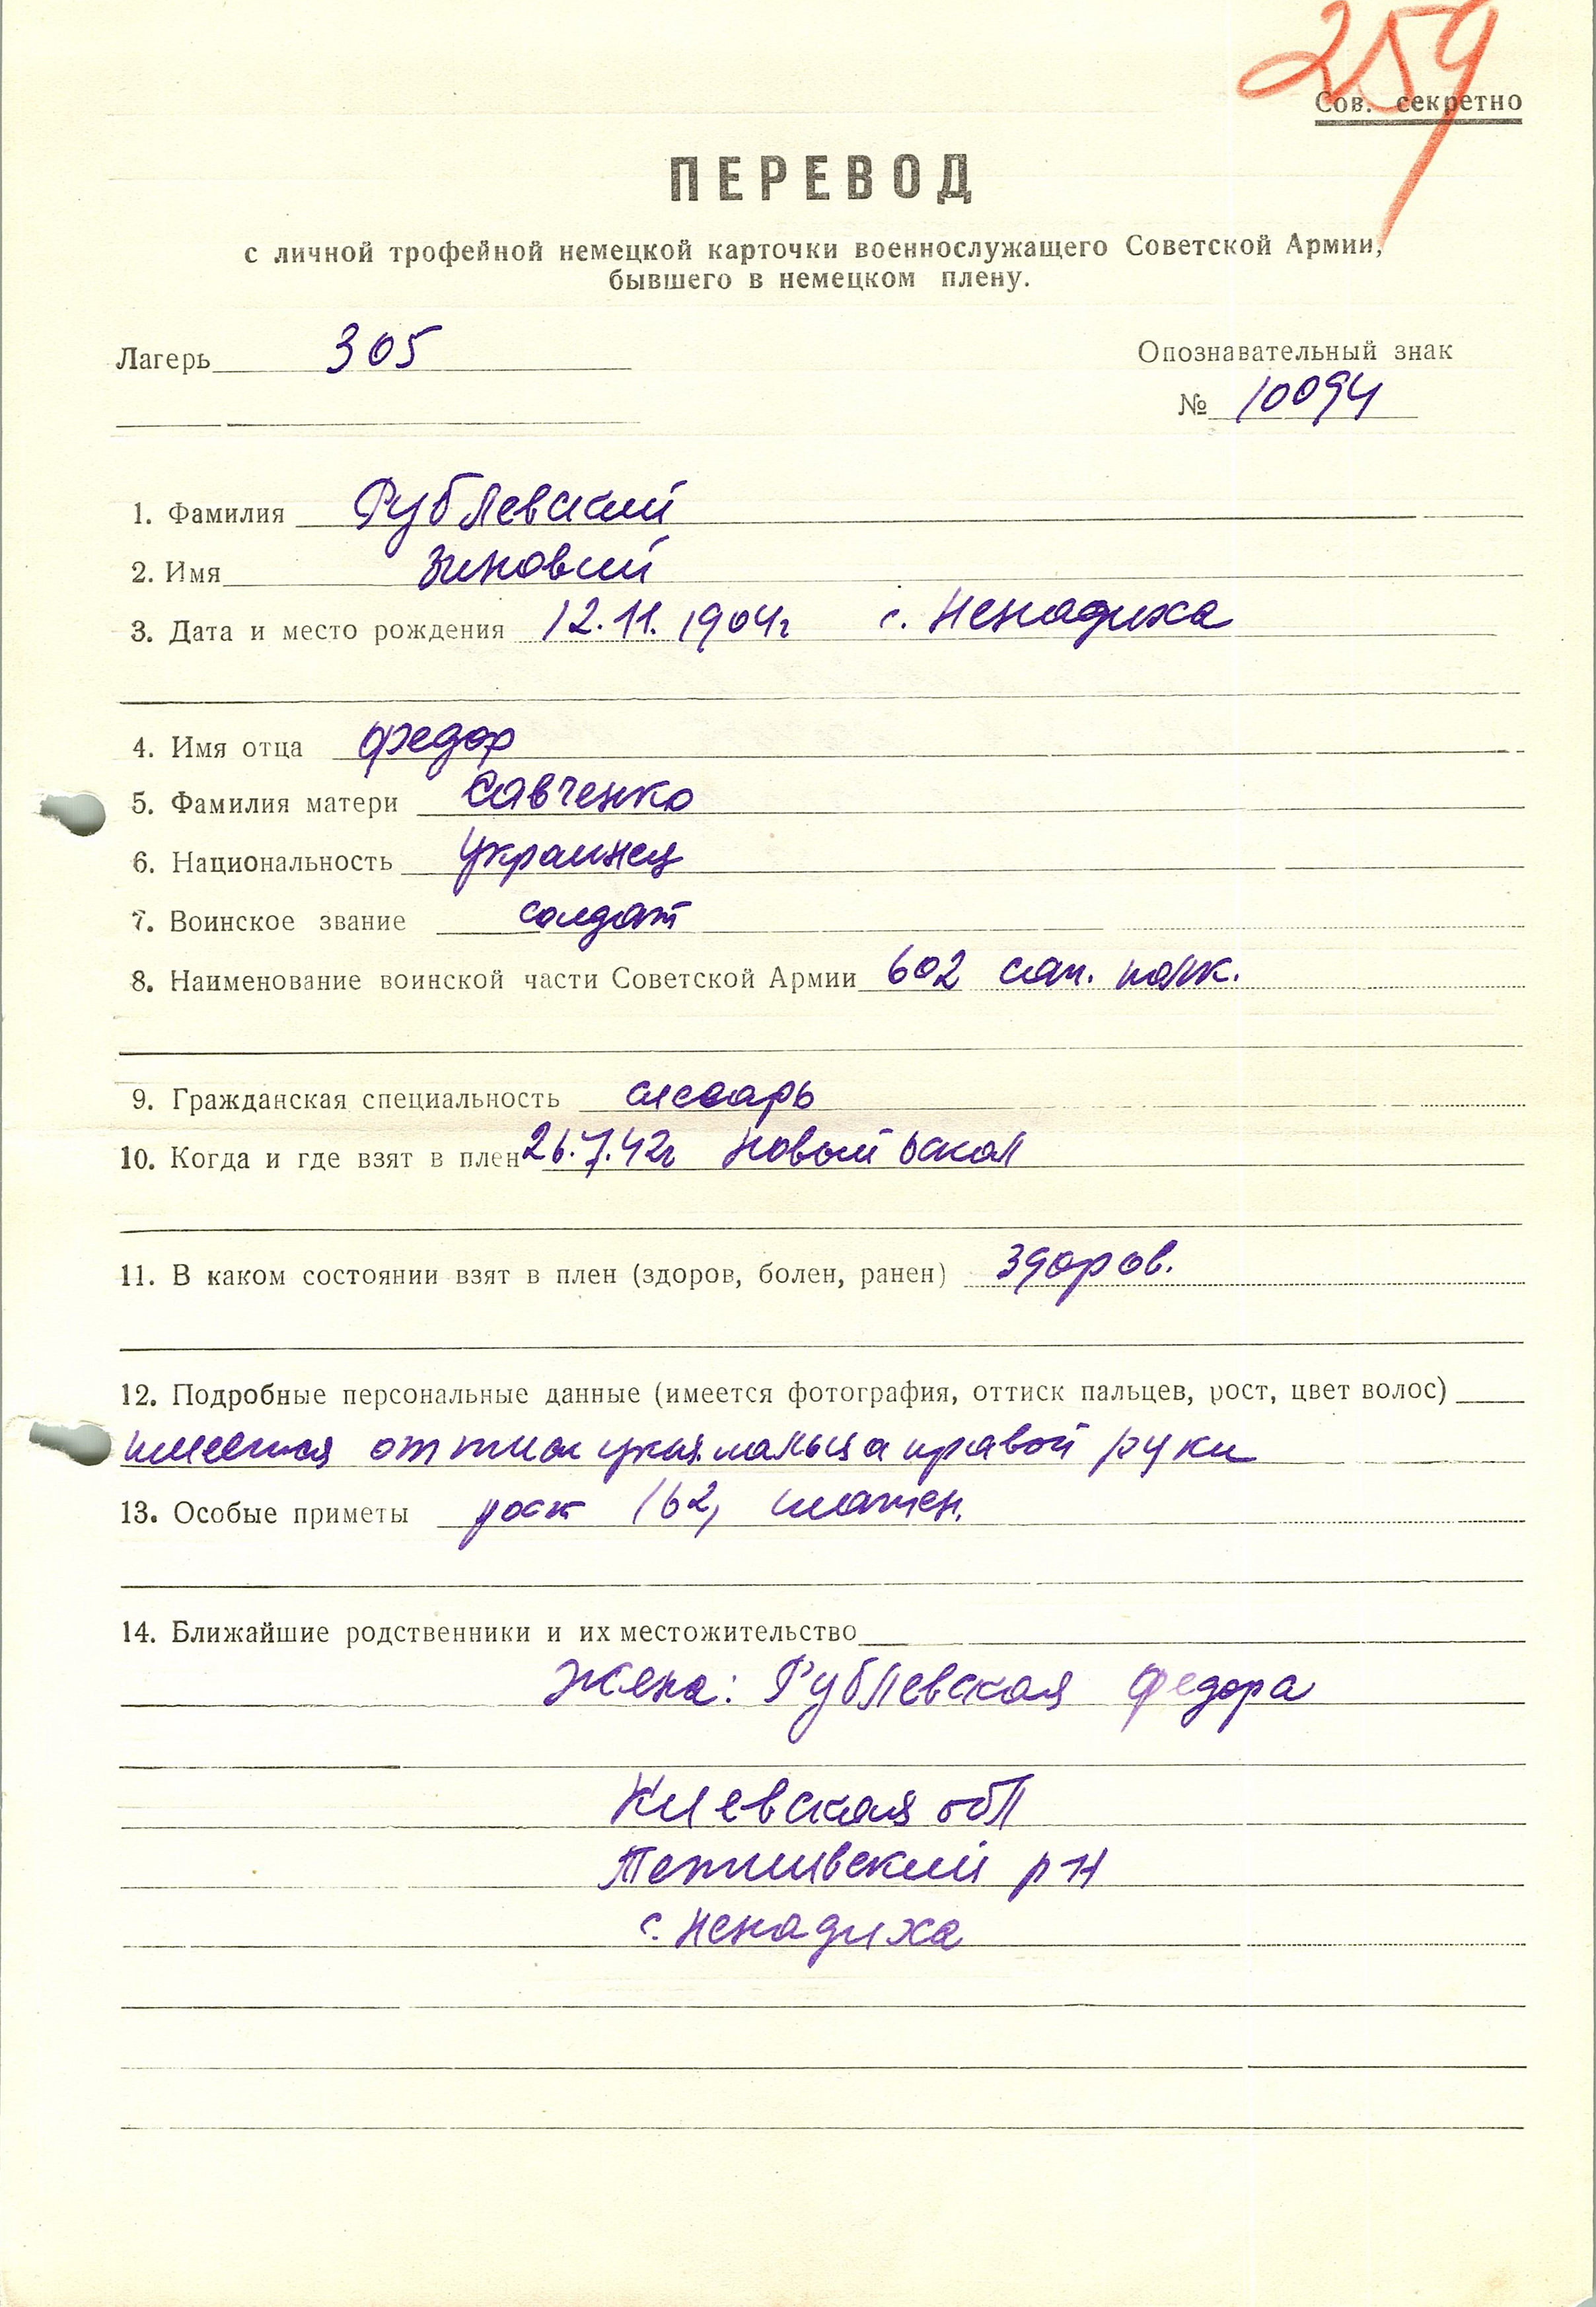 259
Сов. секретно
ПЕРЕВОД
с личной трофейной немецкой карточки военнослужащего Советской Армии,
бывшего в немецком плену.
Лагерь 305
Опознавательный знак
№ 10094
1. Фамилия Рублевский
2. Имя Зиновий
3. Дата и место рождения 12.11.1904г с. Ненадиха
4. Имя отца Федор
5. Фамилия матери Савченко
6. Национальность украинец
7. Воинское звание солдат
8. Наименование воинской части Советской Армии 602 сап. полк.
9. Гражданская специальность слесарь
10. Когда и где взят в плен 26.7.42г Новый Оскол
11. В каком состоянии взят в плен (здоров, болен, ранен) здоров.
12. Подробные персональные данные (имеется фотография, оттиск пальцев, рост, цвет волос)
имеется оттиск указ. пальца правой руки
13. Особые приметы рост 162, шатен.
14. Ближайшие родственники и их местожительство
Жена: Рублевская Федора
Киевская обл
р-н
с. Ненадиха